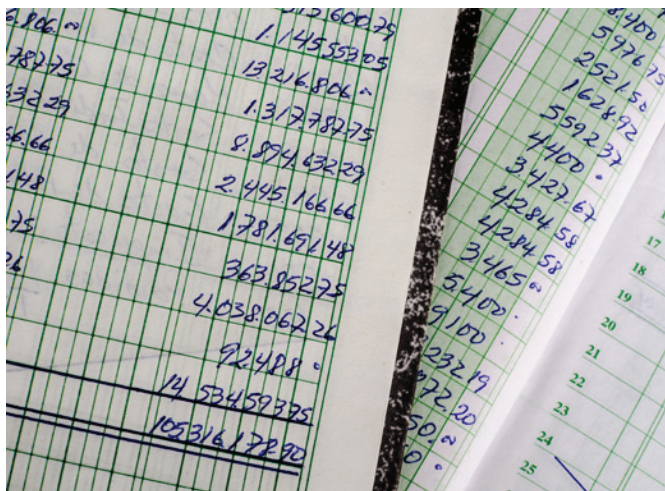 6.806.~
787.75
632.29
66.66
.148
75
26
600.79
1.145.553.05
13.216.806.~
1.317.787.75
8.894.632.29
2.445.166.66
1.781.691.48
363.852.75
4.038.067.26
92.488.
14 534.593.75
105316.178.90
8.400
5976.75
2521.50
1628.92
5592.37
4400.
3.427.67
4.284.58
4.284.58
3.465~
5.400.
9100.
232.19
72.20
50.~
0.
17
18
19
20
21
22
23
24
25